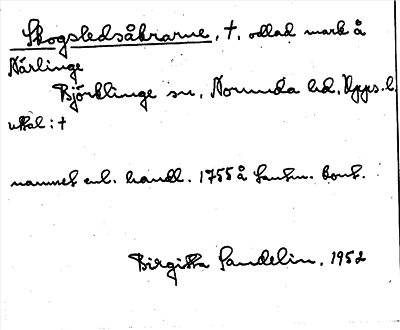 Skogsledsåkrarne, †, odlad mark å
Närlinge
Björklinge sn, Norunda hd, Upps. l.
uttal: †
namnet enl. handl. 1755 å Lantm. kont.
Birgitta Sandelin, 1952